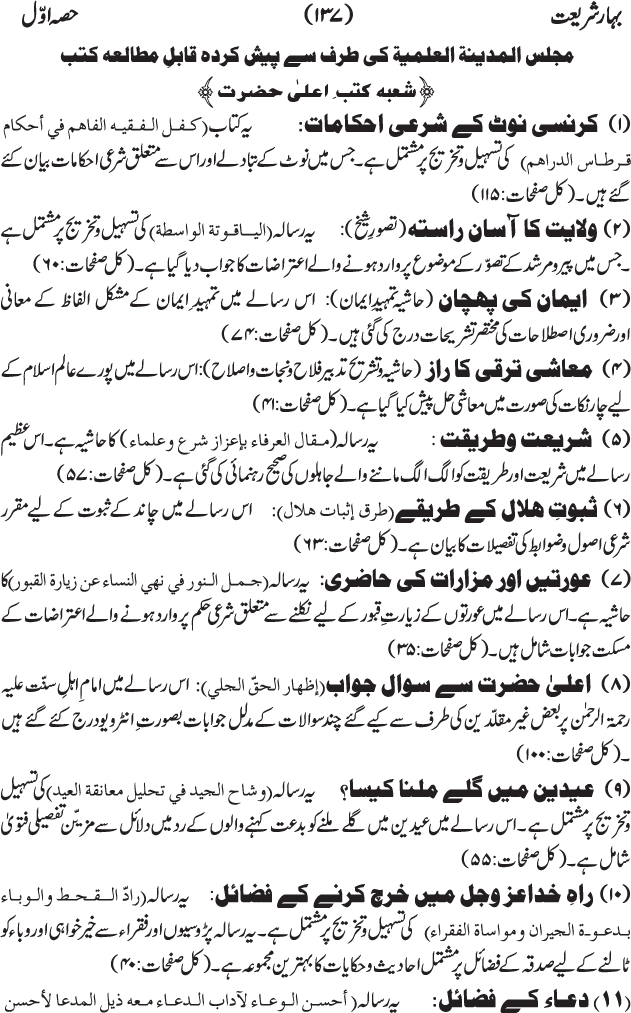 بہار شریعت (۱۳۷) حصہ اوّل
مجلس المدینۃ العلمیۃ کی طرف سے پیش کردہ قابلِ مطالعہ کتب
﴿شعبہ کتبِ اعلیٰ حضرت﴾
(۱) کرنسی نوٹ کے شرعی احکامات: یہ کتاب (کفل الفقیہ الفاھم في أحکام
قرطاس الدراھم) کی تسہیل و تخریج پر مشتمل ہے۔ جس میں نوٹ کے تبادلے اور اس سے متعلق شرعی احکامات بیان کئے
گئے ہیں۔ (کل صفحات: ۱۱۵)
(۲) ولایت کا آسان راستہ (تصورِ شیخ): یہ رسالہ (الیاقوتۃ الواسطۃ) کی تسہیل و تخریج پر مشتمل ہے
۔ جس میں پیر و مرشد کے تصوّر کے موضوع پر وارد ہونے والے اعتراضات کا جواب دیا گیا ہے۔ (کل صفحات: ۶۰)
(۳) ایمان کی پہچان (حاشیہ تمہیدِ ایمان): اس رسالے میں تمہیدِ ایمان کے مشکل الفاظ کے معانی
اور ضروری اصطلاحات کی مختصر تشریحات درج کی گئی ہیں۔ (کل صفحات: ۷۴)
(۴) معاشی ترقی کا راز (حاشیہ و تشریح تدبیر فلاح و نجات و اصلاح): اس رسالے میں پورے عالم اسلام کے
لیے چار نکات کی صورت میں معاشی حل پیش کیا گیا ہے۔ (کل صفحات: ۴۱)
(۵) شریعت وطریقت: یہ رسالہ (مقال العرفاء بإعزاز شرع وعلماء) کا حاشیہ ہے۔ اس عظیم
رسالے میں شریعت اور طریقت کو الگ الگ ماننے والے جاہلوں کی صحیح رہنمائی کی گئی ہے۔ (کل صفحات: ۵۷)
(۶) ثبوتِ ھلال کے طریقے (طرق إثبات ھلال): اس رسالے میں چاند کے ثبوت کے لیے مقرر
شرعی اصول و ضوابط کی تفصیلات کا بیان ہے۔ (کل صفحات: ۶۳)
(۷) عورتیں اور مزارات کی حاضری: یہ رسالہ (جمل النور في نھي النساء عن زیارۃ القبور) کا
حاشیہ ہے۔ اس رسالے میں عورتوں کے زیارتِ قبور کے لیے نکلنے سے متعلق شرعی حکم پر وارد ہونے والے اعتراضات کے
مسکت جوابات شامل ہیں۔ (کل صفحات: ۳۵)
(۸) اعلیٰ حضرت سے سوال جواب (إظھار الحقّ الجلي): اس رسالے میں امامِ اہلِ سنّت علیہ
رحمۃ الرحمٰن پر بعض غیر مقلّدین کی طرف سے کیے گئے چند سوالات کے مدلل جوابات بصورتِ انٹرویو درج کئے گئے ہیں
۔ (کل صفحات: ۱۰۰)
(۹) عیدین میں گلے ملنا کیسا؟ یہ رسالہ (وشاح الجید في تحلیل معانقۃ العید) کی تسہیل
و تخریج پر مشتمل ہے۔ اس رسالے میں عیدین میں گلے ملنے کو بدعت کہنے والوں کے رد میں دلائل سے مزیّن تفصیلی فتویٰ
شامل ہے۔ (کل صفحات: ۵۵)
(۱۰) راہِ خدا عز وجل میں خرچ کرنے کے فضائل: یہ رسالہ (رادّ القحط والوباء
بدعوۃ الجیران ومواساۃ الفقراء) کی تسہیل و تخریج پر مشتمل ہے۔ یہ رسالہ پڑوسیوں اور فقراء سے خیر خواہی اور وباء کو
ٹالنے کے لیے صدقہ کے فضائل پر مشتمل احادیث و حکایات کا بہترین مجموعہ ہے۔ (کل صفحات: ۴۰)
(۱۱) دعاء کے فضائل: یہ رسالہ (أحسن الوعاء لآداب الدعاء معہ ذیل المدعا لأحسن